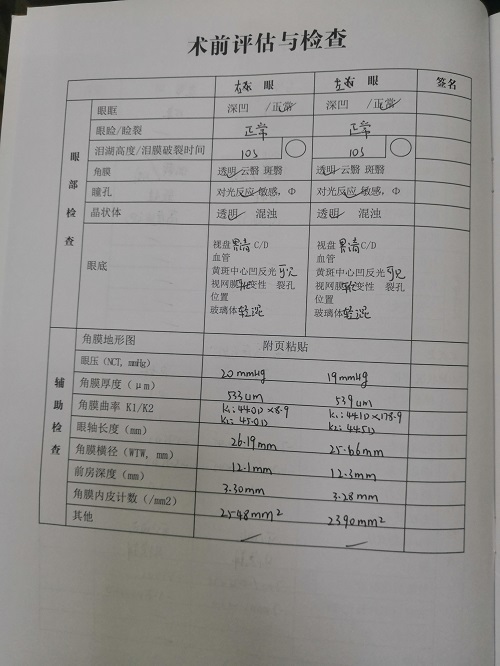 术前评估与检查
右 眼 左 眼 签名
眼部检查
眼眶 深凹 /正常 深凹 /正常
眼睑/睑裂 正常 正常
泪湖高度/泪膜破裂时间 10s 10s
角膜 透明 云翳 斑翳 透明 云翳 斑翳
瞳孔 对光反应 敏感, Φ 对光反应 敏感, Φ
晶状体 透明 混浊 透明 混浊
眼底
视盘 界清 C/D 视盘 界清 C/D
血管 血管
黄斑中心凹反光 可见 黄斑中心凹反光 可见
视网膜 变性 裂孔 视网膜 变性 裂孔
位置 位置
玻璃体 轻混 玻璃体 轻混
辅助检查
角膜地形图 附页粘贴
眼压(NCT, mmHg) 20mmHg 19mmHg
角膜厚度(μm) 533um 539um
角膜曲率 K1/K2 K1: 44.0D×8.9 K1: 44.1D×178.9
K2: 45.0D K2: 44.5D
眼轴长度(mm) 26.19mm 25.66mm
角膜横径(WTW, mm) 12.1mm 12.3mm
前房深度(mm) 3.30mm 3.28mm
角膜内皮计数(/mm2) 2548mm² 2390mm²
其他